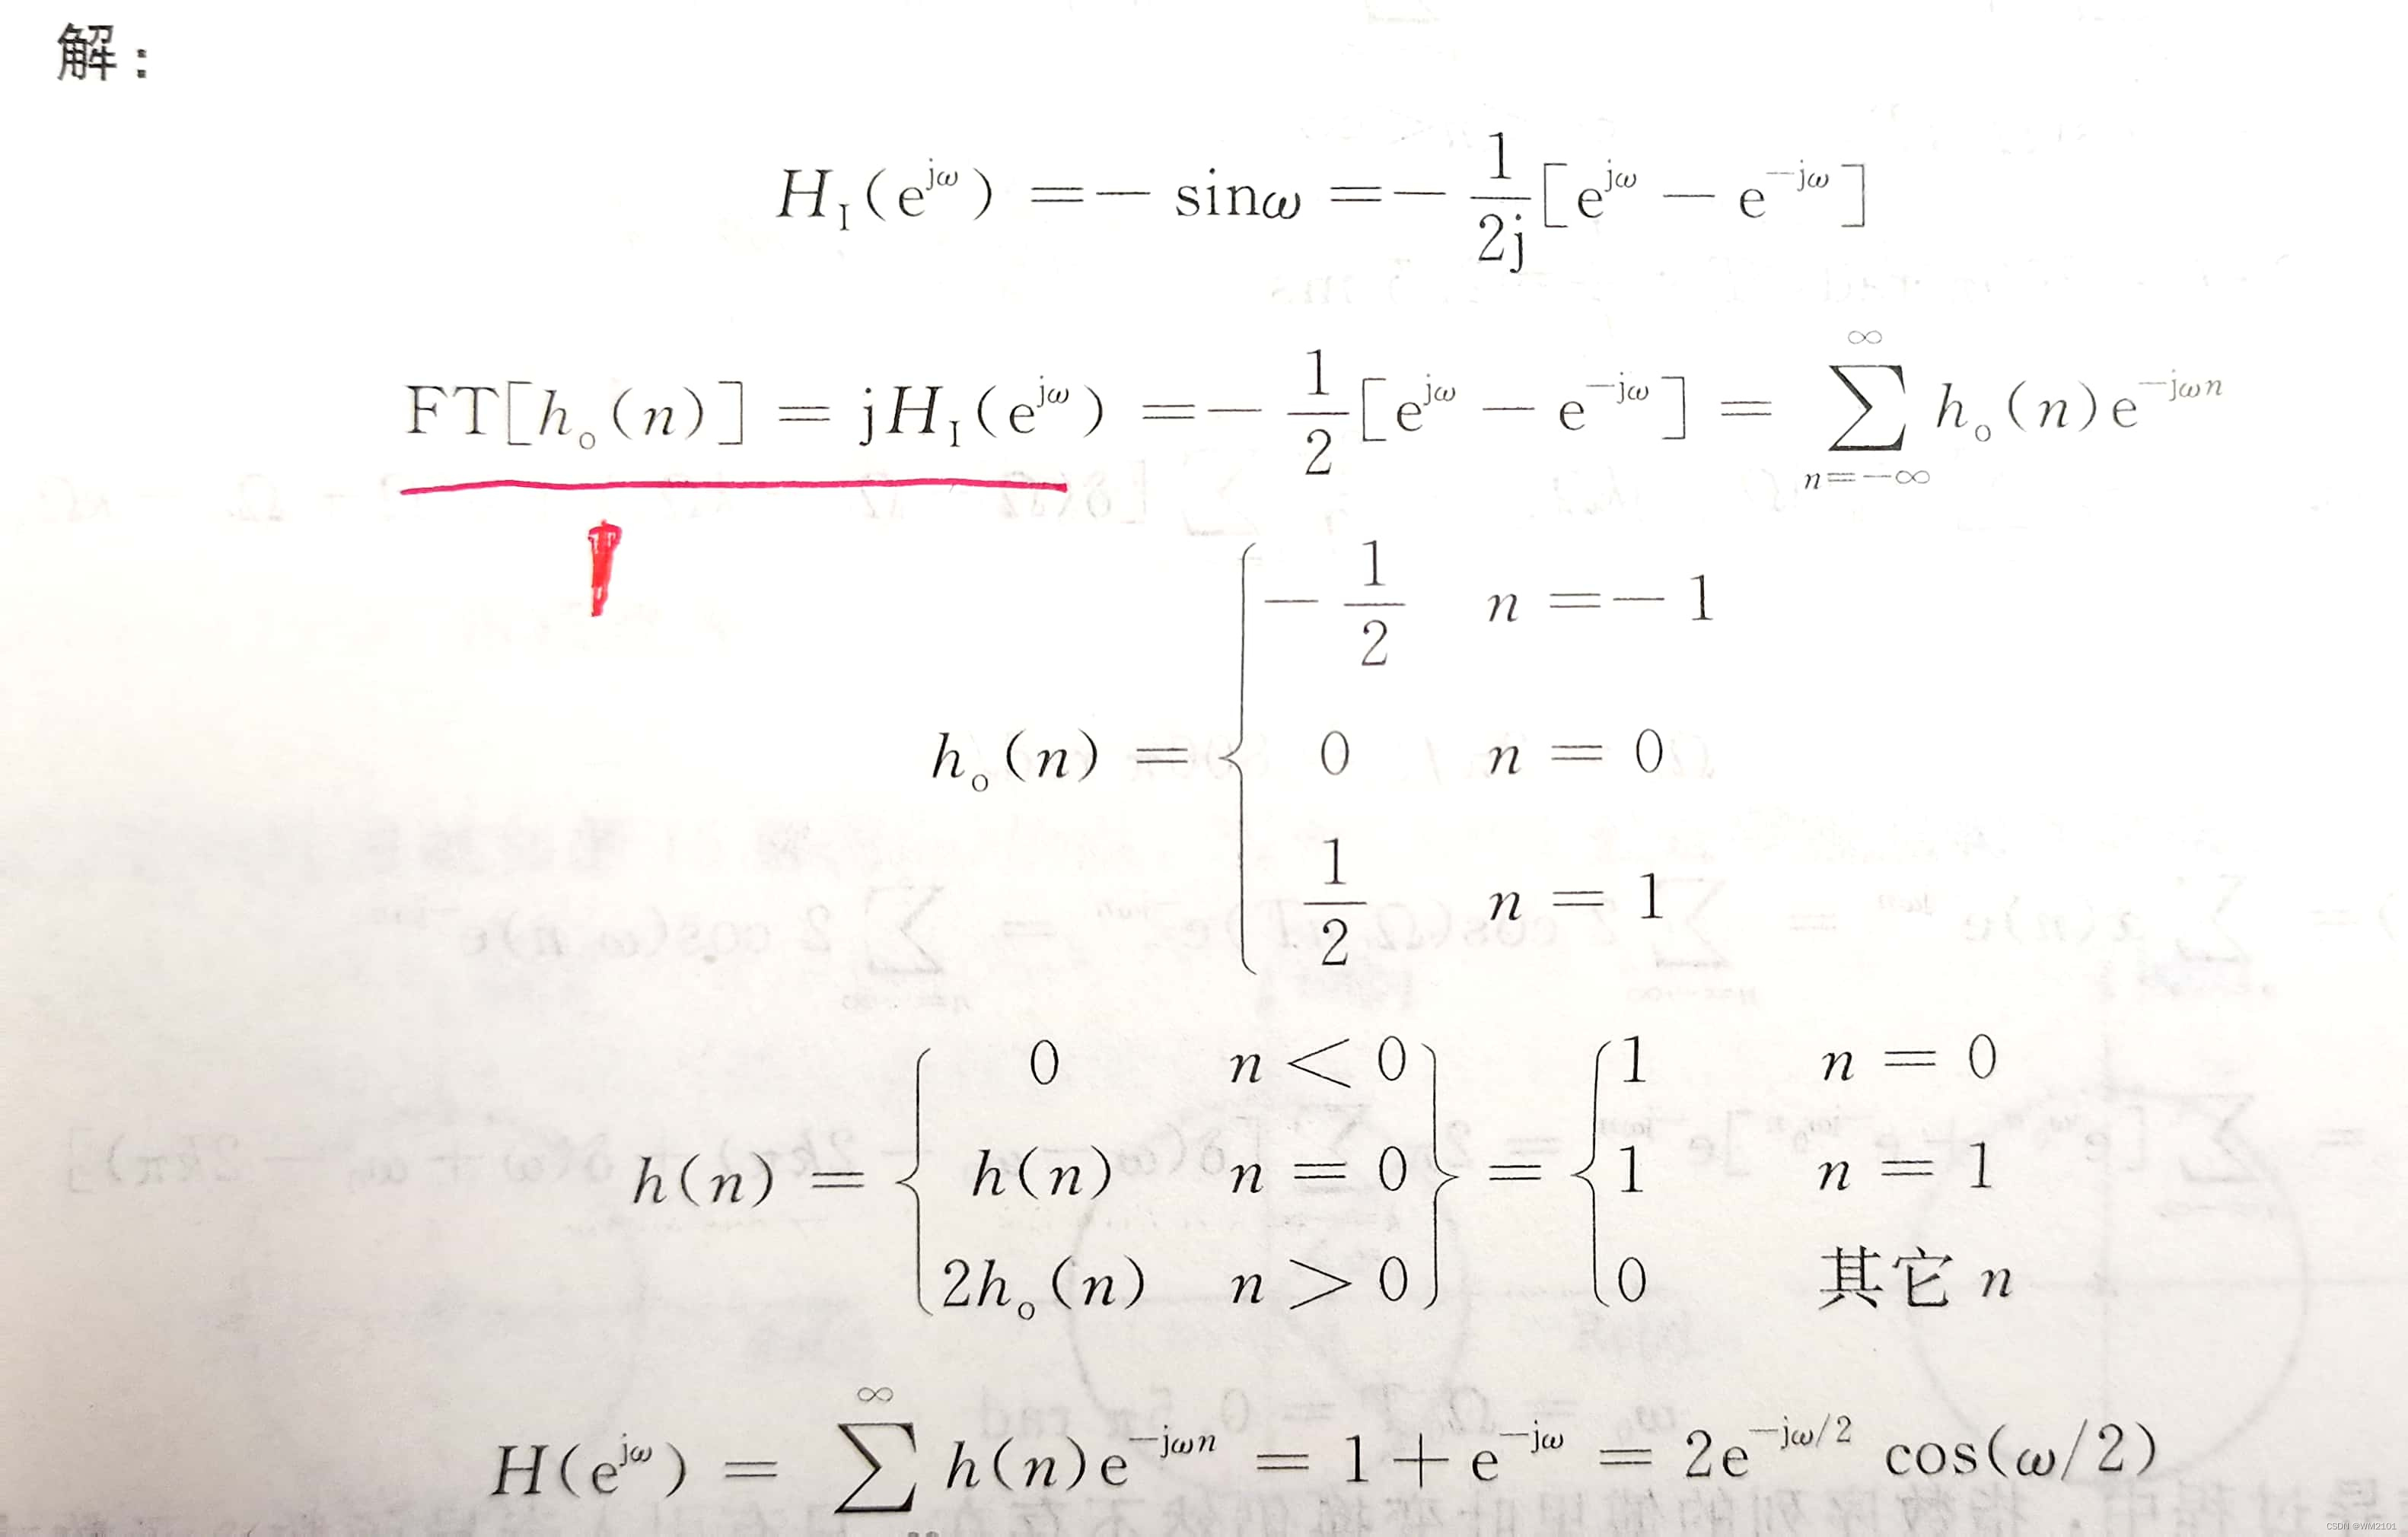 解：
H_I(e^{jω}) =− sinω =− \frac{1}{2j}[e^{jω} − e^{−jω}]
FT[h_o(n)] = jH_I(e^{jω}) =− \frac{1}{2}[e^{jω} − e^{−jω}] = \sum_{n=−∞}^{∞} h_o(n)e^{−jωn}
h_o(n) = \begin{cases} −\frac{1}{2} & n =− 1 \\ 0 & n = 0 \\ \frac{1}{2} & n = 1 \end{cases}
h(n) = \begin{Bmatrix} 0 & n < 0 \\ h(n) & n = 0 \\ 2h_o(n) & n > 0 \end{Bmatrix} = \begin{cases} 1 & n = 0 \\ 1 & n = 1 \\ 0 & 其它 n \end{cases}
H(e^{jω}) = \sum^{∞} h(n)e^{−jωn} = 1 + e^{−jω} = 2e^{−jω/2} cos(ω/2)
CSDN @WM2101